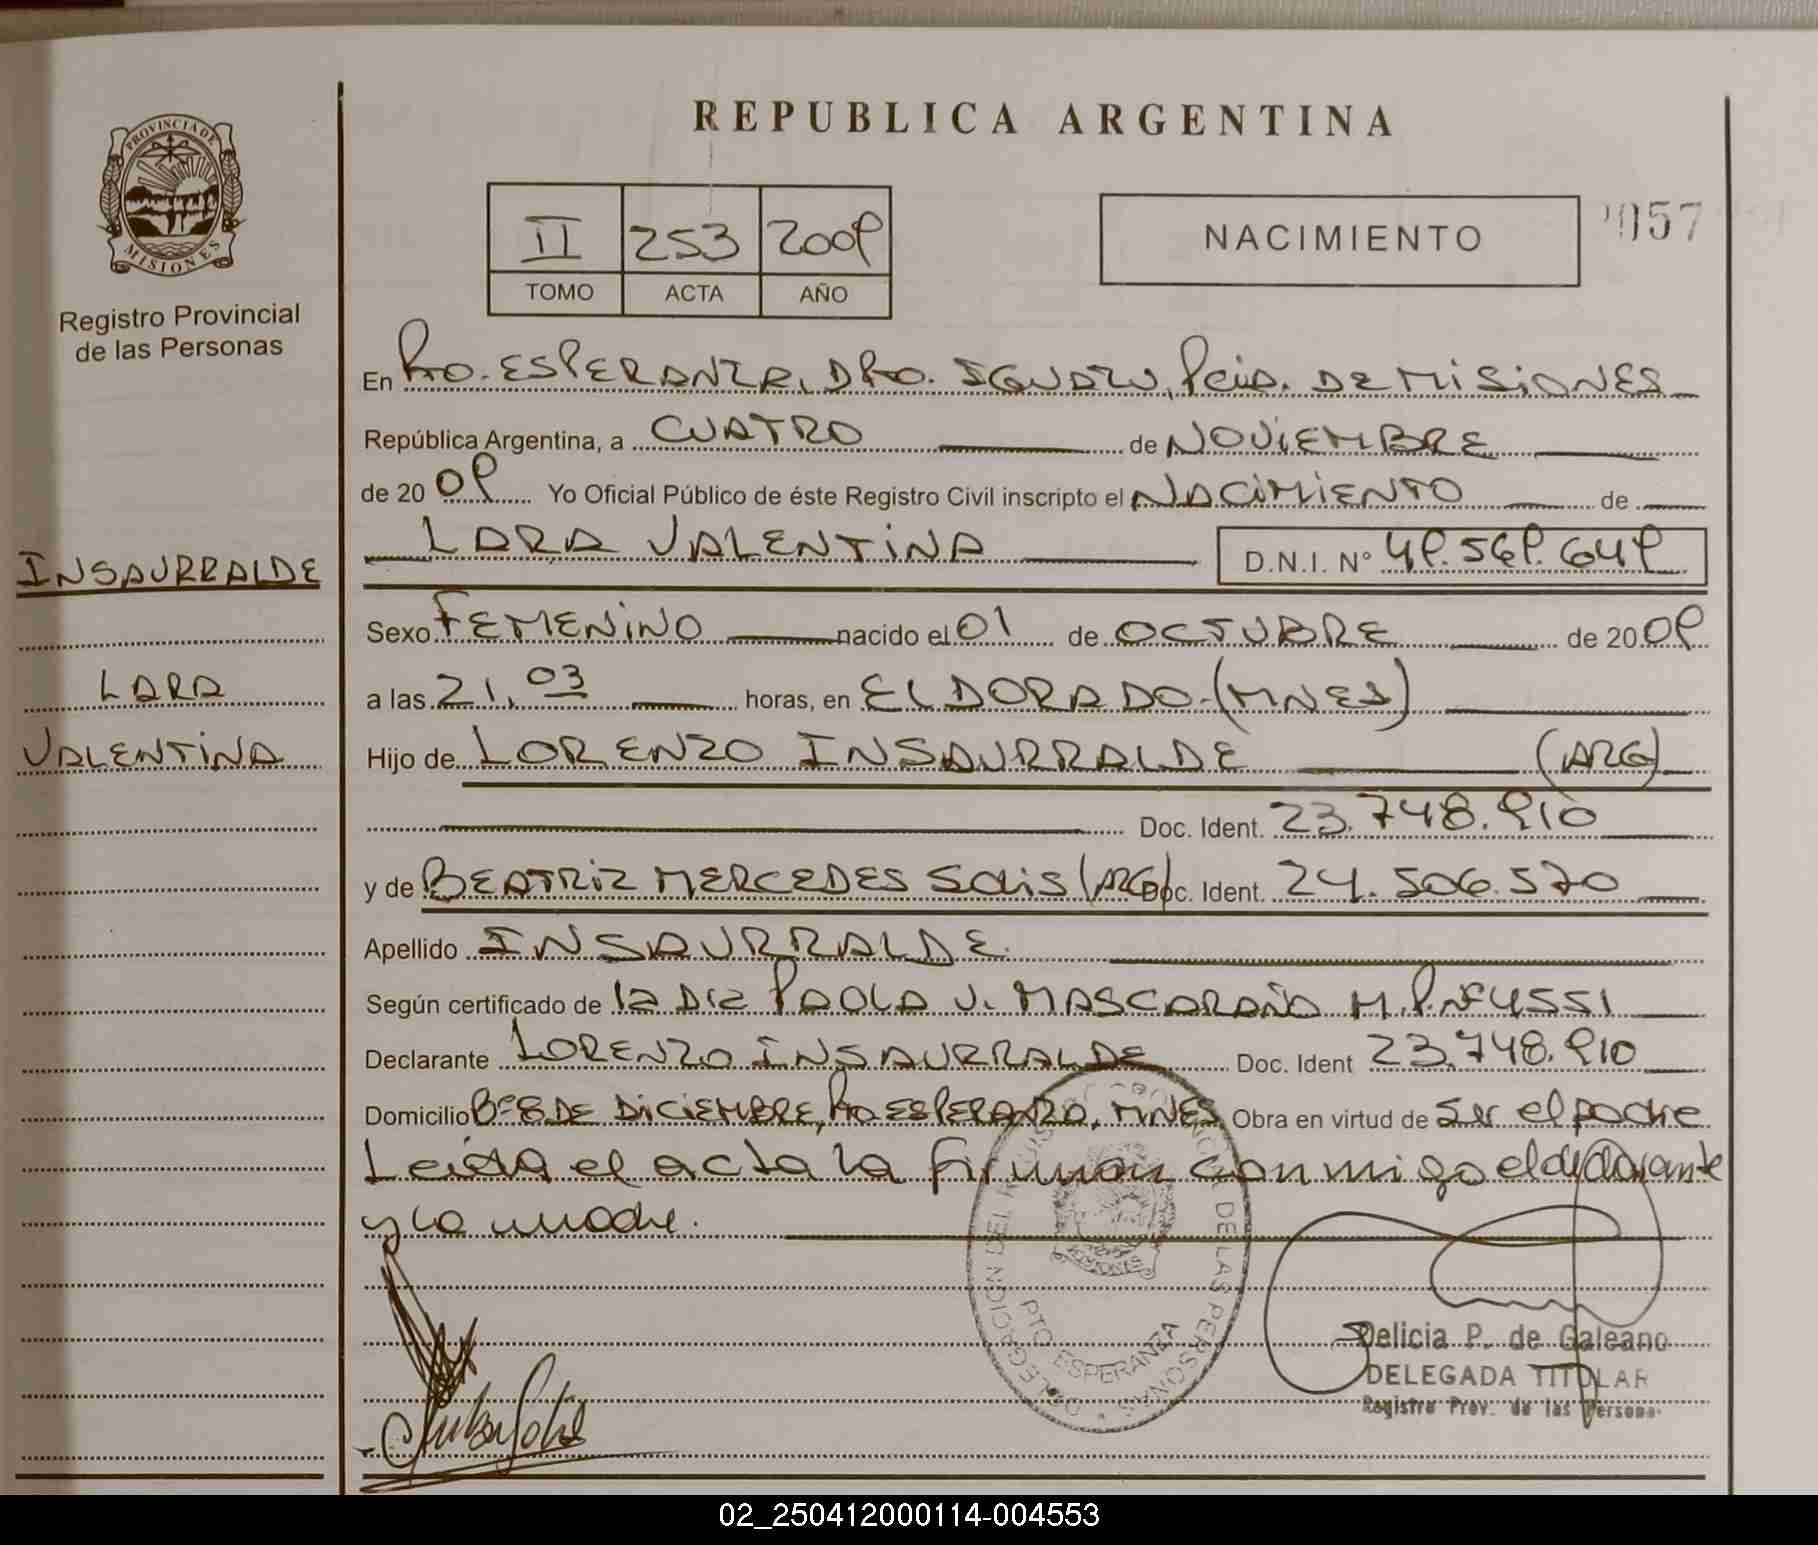 REPUBLICA ARGENTINA
PROVINCIA DE MISIONES
Registro Provincial
de las Personas
II 253 2009
TOMO ACTA AÑO
NACIMIENTO
057
En Pto. ESPERANZA, DPto. IGUAZU, Pcia. DE MISIONES
República Argentina, a CUATRO de NOVIEMBRE
de 20 09 Yo Oficial Público de éste Registro Civil inscripto el NACIMIENTO de
LARA VALENTINA D.N.I. Nº 49.569.649
INSAURRALDE
LARA
VALENTINA
Sexo FEMENINO nacido el 01 de OCTUBRE de 20 09
a las 21,03 horas, en ELDORADO-(MNES)
Hijo de LORENZO INSAURRALDE (ARG)
Doc. Ident. 23.748.910
y de BEATRIZ MERCEDES SOLIS (ARG) Doc. Ident. 24.506.570
Apellido INSAURRALDE.
Según certificado de la DRA PAOLA V. MASCARAÑO M.P.Nº 4551
Declarante LORENZO INSAURRALDE Doc. Ident 23.748.910
Domicilio Bº 8 DE DICIEMBRE, Pto ESPERANZA, MNES Obra en virtud de ser el padre
Leida el acta la firman conmigo el declarante
y la madre.
DELEGACION DEL REGISTRO PROVINCIAL DE LAS PERSONAS
MISIONES
PTO ESPERANZA
Delicia P. de Galeano
DELEGADA TITULAR
Registro Prov. de las Persona
02_250412000114-004553